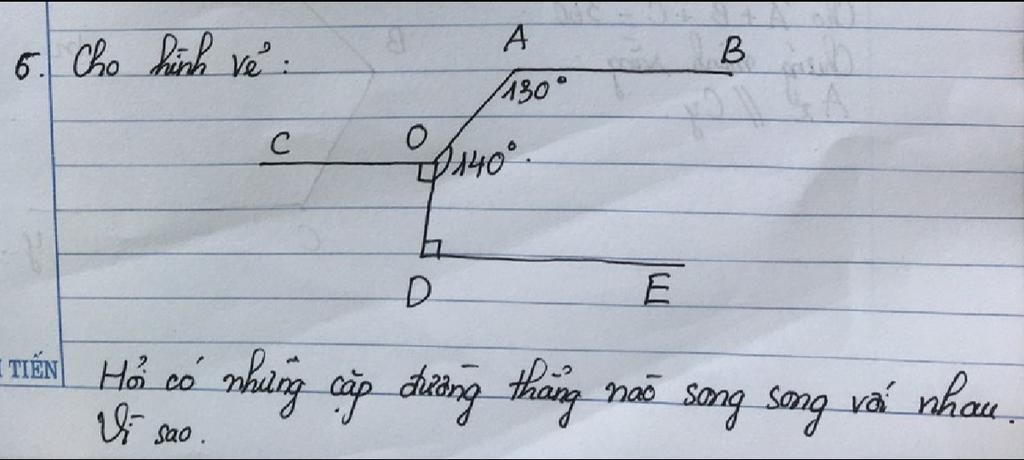 6. Cho hình vẽ:
A
B
130°
C
O
140°.
D
E
TIẾN
Hỏi có những cặp đường thẳng nào song song với nhau.
Vì sao.